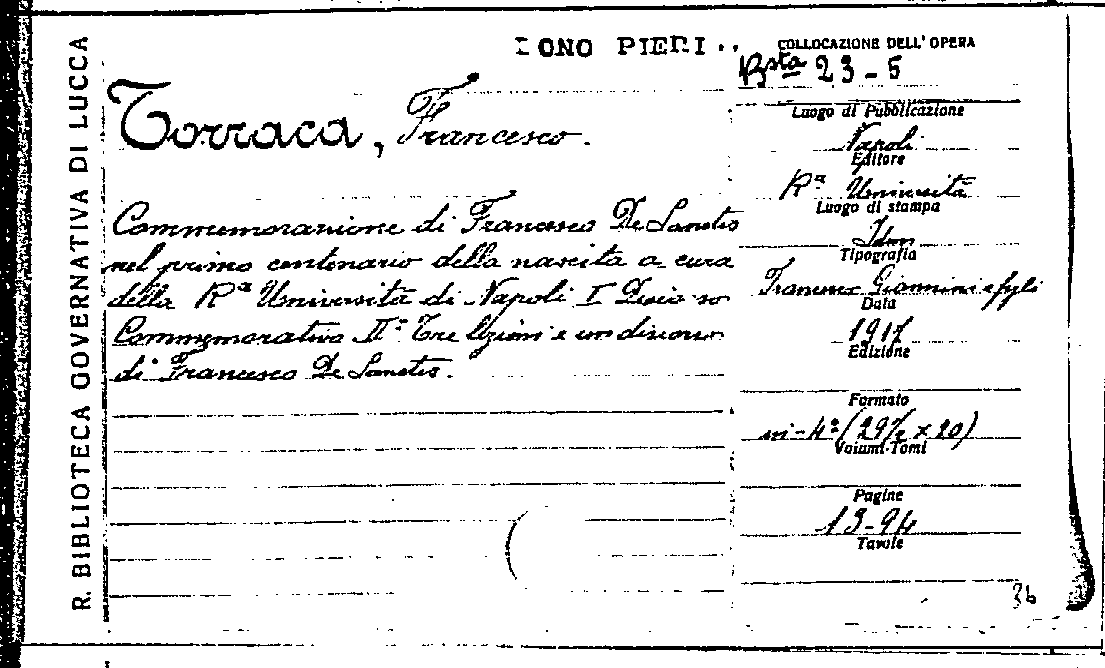 R. BIBLIOTECA GOVERNATIVA DI LUCCA
DONO PIERI..
COLLOCAZIONE DELL'OPERA
Bsta 23-5
Torraca, Francesco.
Commemorazione di Francesco De Sanctis
nel primo centenario della nascita a cura
della Ra Università di Napoli I Discorso
Commemorativo IIº Tre lezioni e un discorso
di Francesco De Sanctis.
Luogo di Pubblicazione
Napoli
Editore
Ra Università
Luogo di stampa
Idem
Tipografia
Francesco Giannini e figli
Data
1917
Edizione
Formato
in-4º (29½ x 20)
Volumi-Tomi
Pagine
13-94
Tavole
36